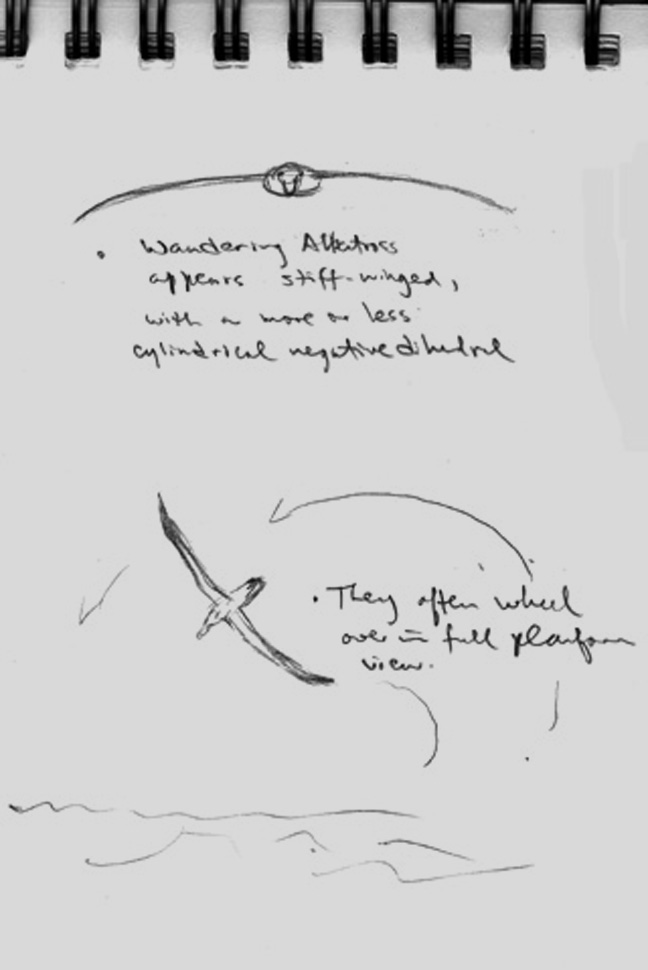 • Wandering Albatross
appears stiff-winged,
with a more or less
cylindrical negative dihedral
• They often wheel
over in full planform
view.